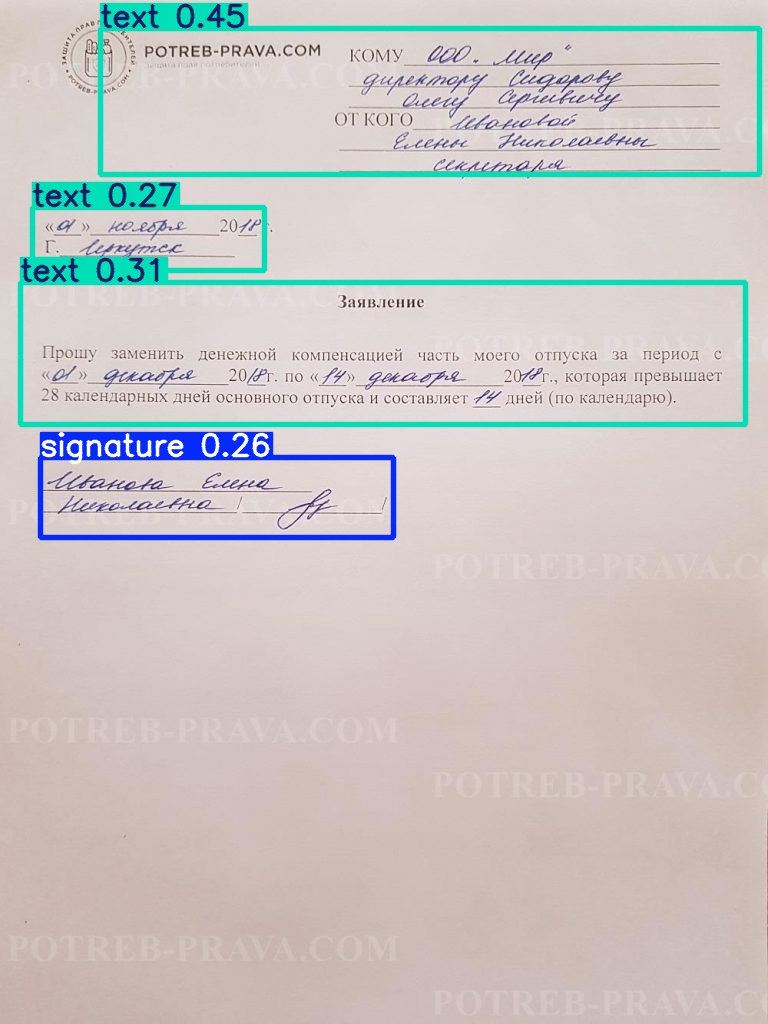 text 0.45
ЗАЩИТА ПРАВ ПОТРЕБИТЕЛЕЙ
POTREB-PRAVA.COM
POTREB-PRAVA.COM
защита прав потребителей
КОМУ ООО „Мир“
директору Сидорову
Олегу Сергеевичу
ОТ КОГО Ивановой
Елены Николаевны
секретаря
text 0.27
«01» ноября 2018 г.
Г. Иркутск
text 0.31
Заявление
Прошу заменить денежной компенсацией часть моего отпуска за период с
«01» декабря 2018г. по «14» декабря 2018г., которая превышает
28 календарных дней основного отпуска и составляет 14 дней (по календарю).
signature 0.26
Иванова Елена
Николаевна / /
POTREB-PRAVA.COM
POTREB-PRAVA.COM
POTREB-PRAVA.COM
POTREB-PRAVA.COM
POTREB-PRAVA.COM
POTREB-PRAVA.COM